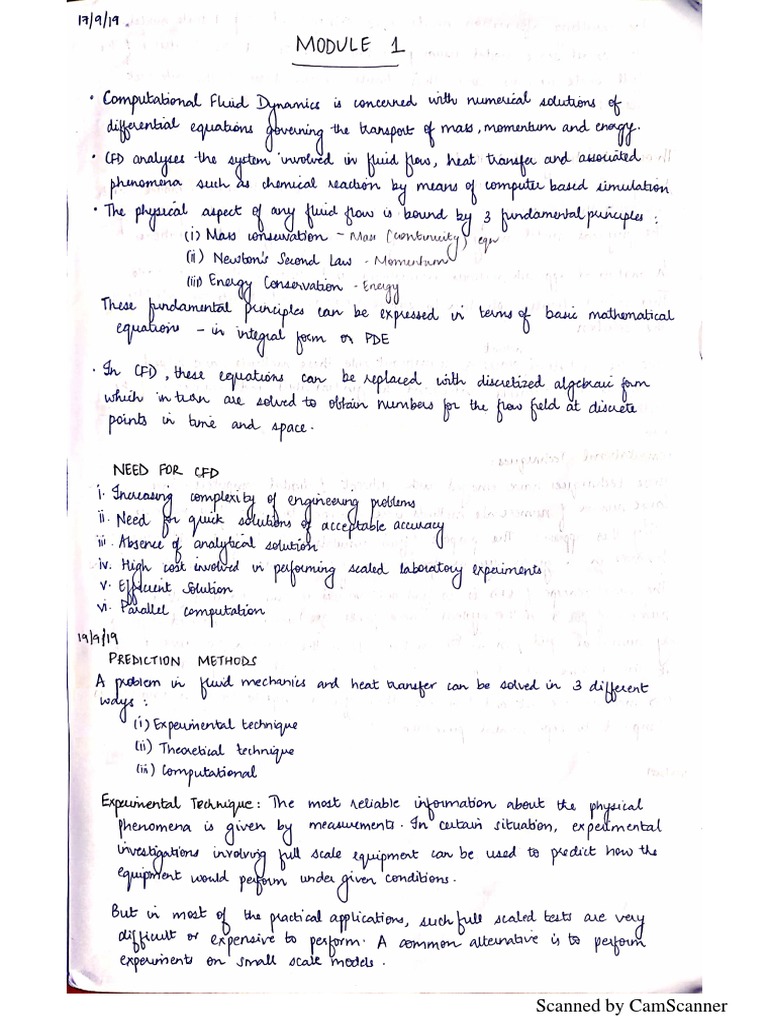 17/9/19
MODULE 1
• Computational Fluid Dynamics is concerned with numerical solutions of
differential equations governing the transport of mass, momentum and energy.
• CFD analyses the system involved in fluid flow, heat transfer and associated
phenomena such as chemical reaction by means of computer based simulation
• The physical aspect of any fluid flow is bound by 3 fundamental principles :
(i) Mass conservation - Mass (continuity) eqn
(ii) Newton's Second Law - Momentum
(iii) Energy Conservation - Energy
These fundamental principles can be expressed in terms of basic mathematical
equations - in integral form or PDE
• In CFD, these equations can be replaced with discretized algebraic form
which in turn are solved to obtain numbers for the flow field at discrete
points in time and space.
NEED FOR CFD
i. Increasing complexity of engineering problems
ii. Need for quick solutions of acceptable accuracy
iii. Absence of analytical solution
iv. High cost involved in performing scaled laboratory experiments
v. Efficient Solution
vi. Parallel computation
19/9/19
PREDICTION METHODS
A problem in fluid mechanics and heat transfer can be solved in 3 different
ways :
(i) Experimental technique
(ii) Theoretical technique
(iii) Computational
Experimental Technique : The most reliable information about the physical
phenomena is given by measurements. In certain situation, experimental
investigations involving full scale equipment can be used to predict how the
equipment would perform under given conditions.
But in most of the practical applications, such full scaled tests are very
difficult or expensive to perform. A common alternative is to perform
experiments on small scale models.
Scanned by CamScanner